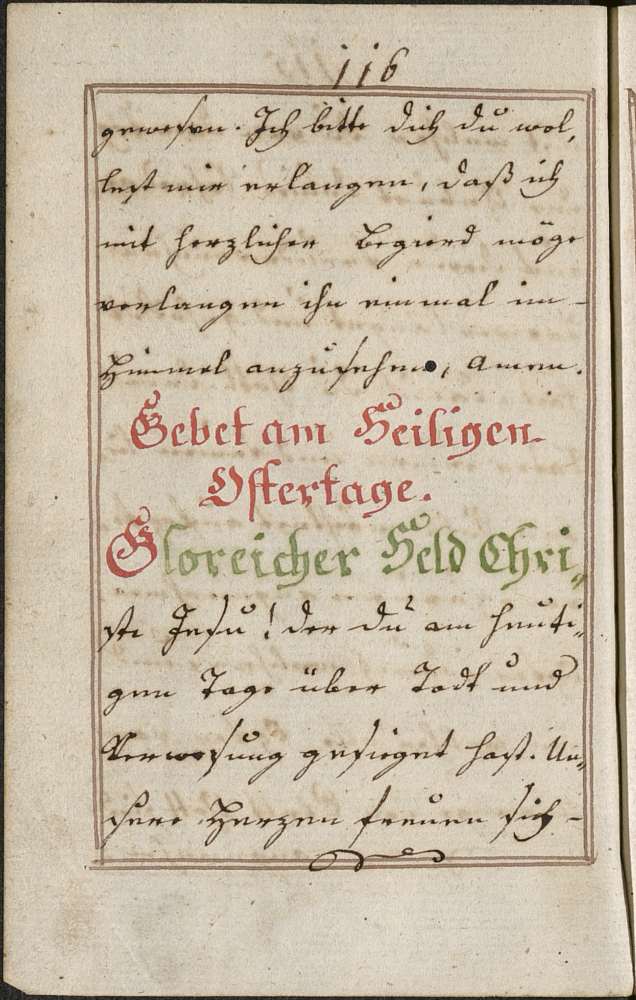 116
gewesen. Ich bitte dich du wol,
lest mir erlangen, daß ich
mit herzlicher Begierd möge
verlangen ihn einmal im
Himmel anzusehen, Amen.
Gebet am Heiligen
Ostertage.
Gloreicher Held Chri„
ste Jesu! der du am heuti„
gen Tage über Todt und
Verwesung gesieget hast. Un„
sere Herzen freuen sich